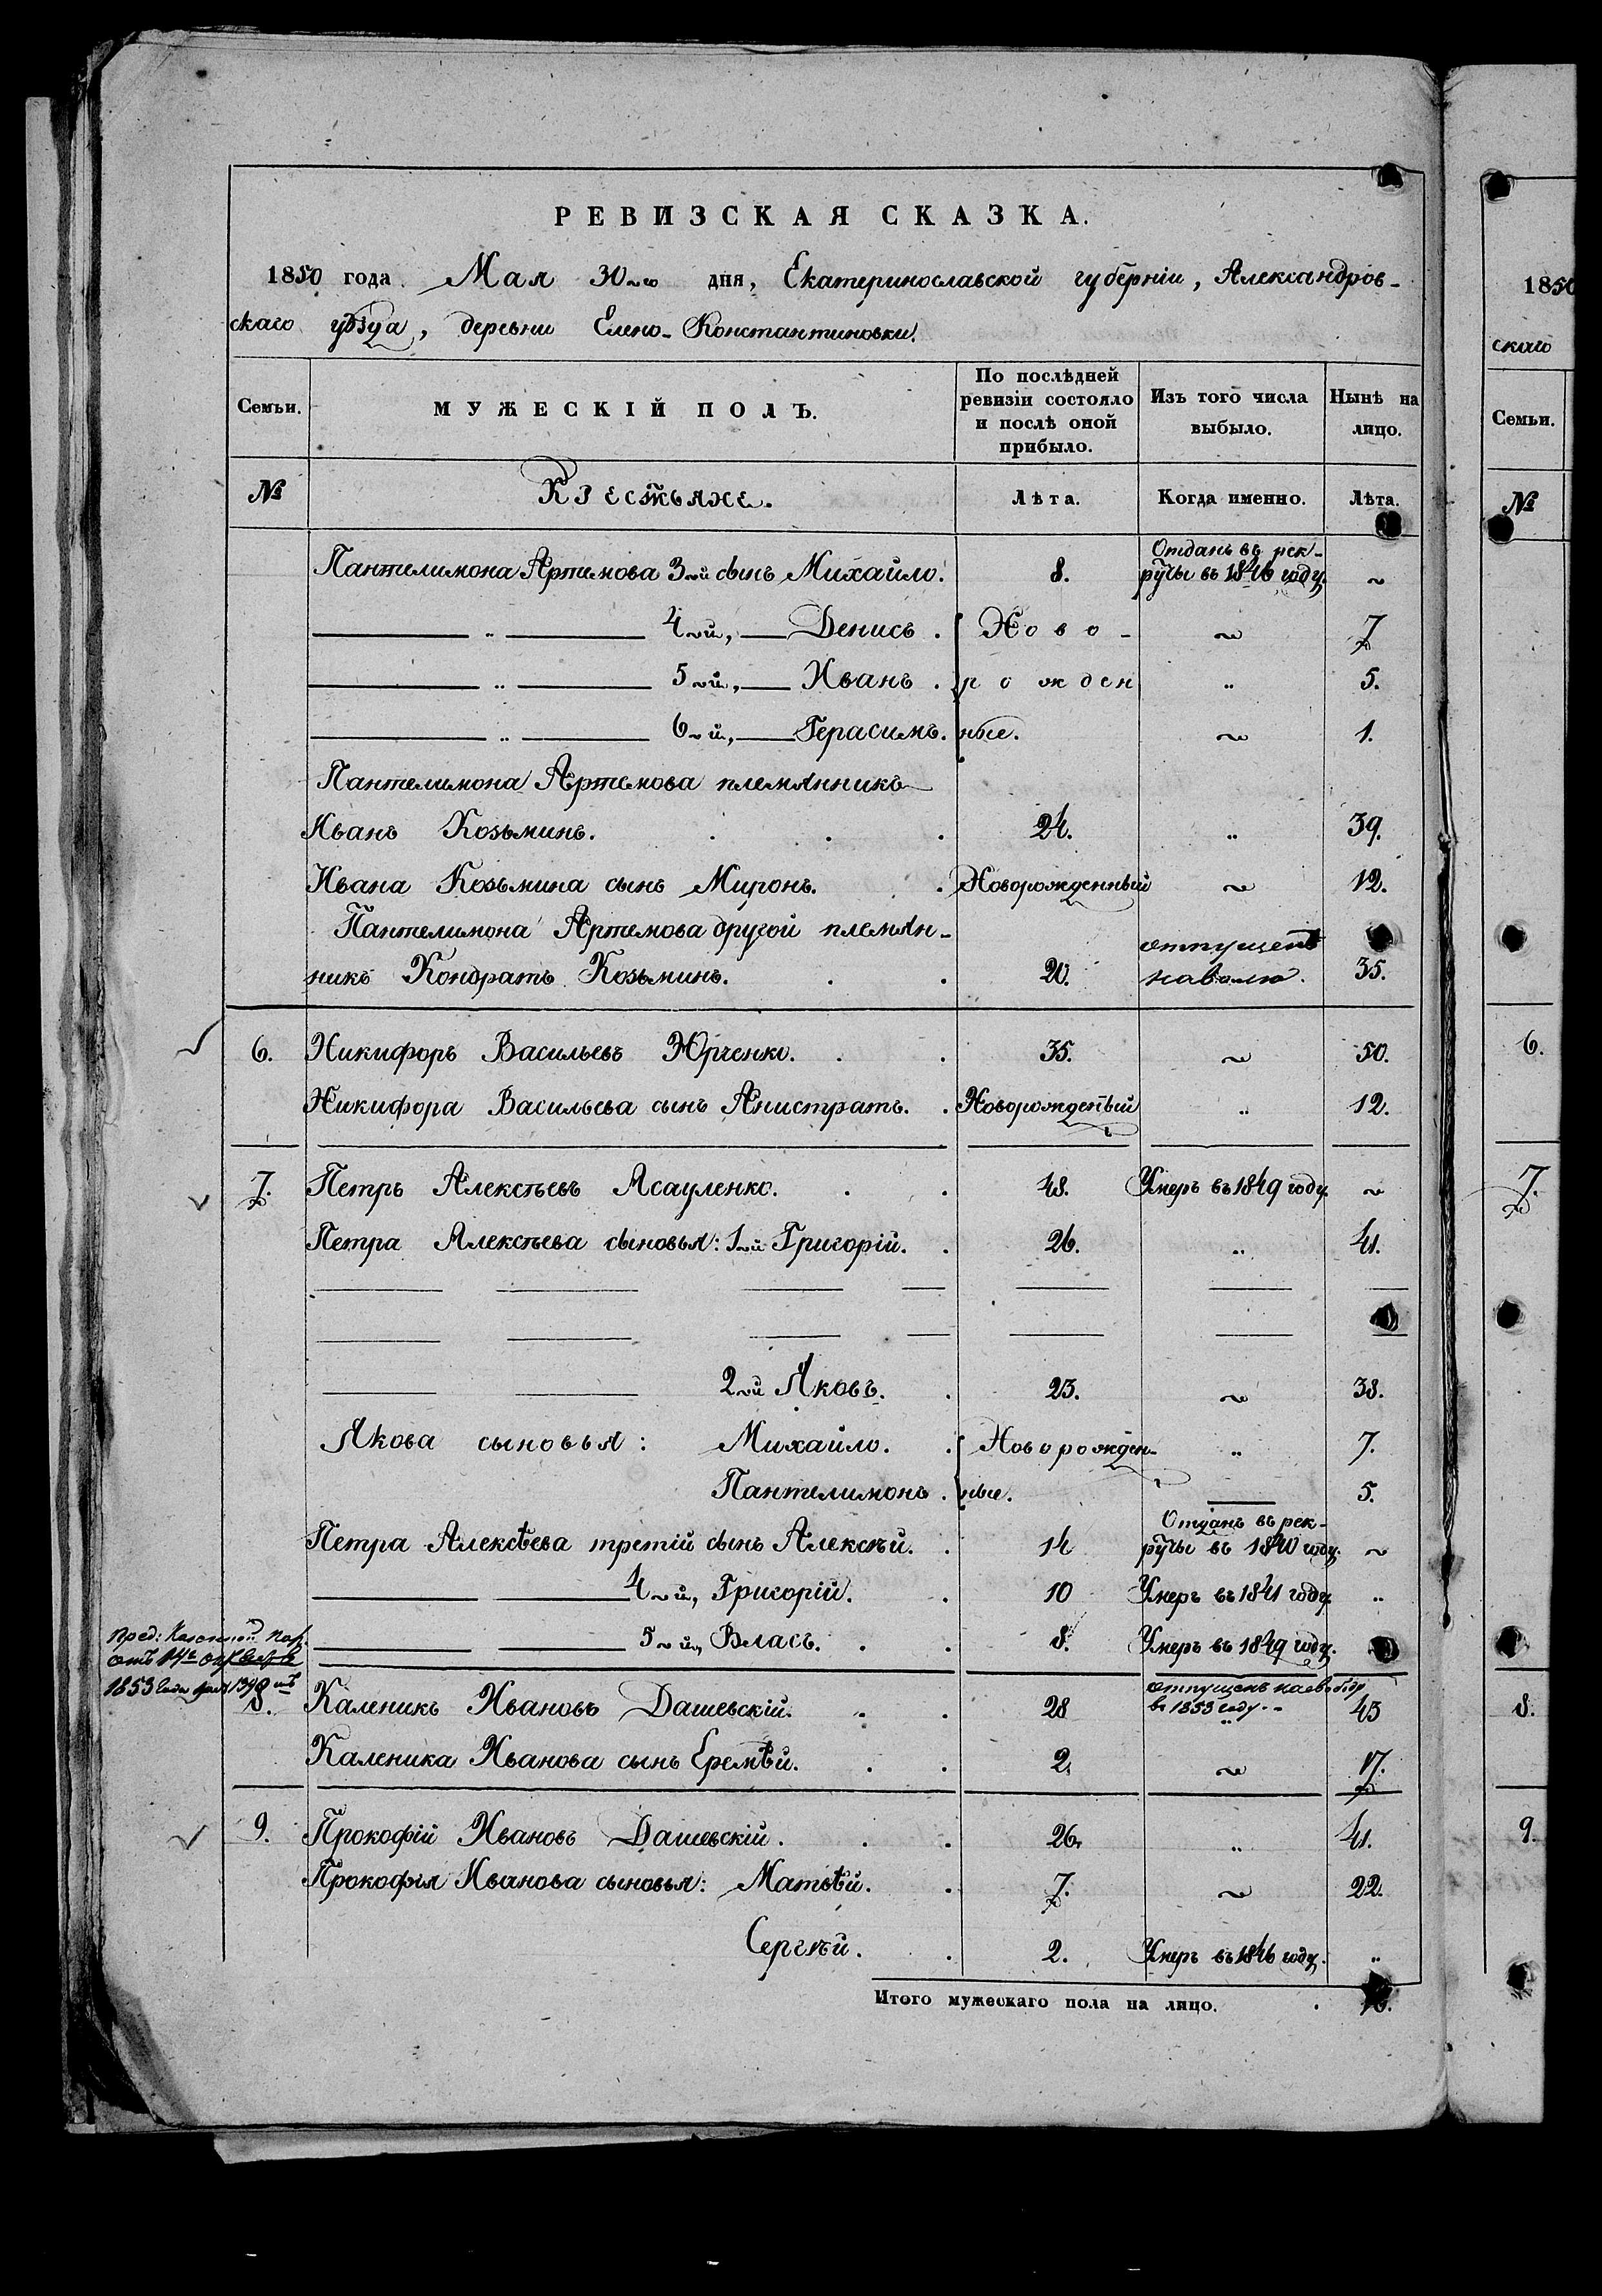 РЕВИЗСКАЯ СКАЗКА.
1850 года Мая 30го дня, Екатеринославской губерніи, Александров-
скаго уѣзда, деревни Елено-Константиновки.
Семьи. МУЖЕСКІЙ ПОЛЪ. По послѣдней ревизіи состояло и послѣ оной прибыло. Изъ того числа выбыло. Нынѣ на лицо.
№ Крестьяне. Лѣта. Когда именно. Лѣта.
Пантелимона Артемова 3й сынъ Михайло. 8. Отданъ въ рек-
руты въ 1846 году. ~
— „ — 4й, — Денисъ. Ново- ~ 7
— „ — 5й, — Иванъ. рожден „ 5.
— „ — 6й, — Герасимъ. ные. ~ 1.
Пантелимона Артемова племянникъ
Иванъ Козьминъ. 24. „ 39.
Ивана Козьмина сынъ Миронъ. Новорожденный ~ 12.
Пантелимона Артемова другой племян-
никъ Кондратъ Козьминъ. 20. отпущенъ
наволю. 35.
6. Никифоръ Васильевъ Юрченко. 35. ~ 50.
Никифора Васильева сынъ Анистратъ. Новорожденый „ 12.
7. Петръ Алексѣевъ Асауленко. 48. Умеръ въ 1849 году. ~
Петра Алексѣева сыновья: 1й Григорій. 26. „ 41.
2й Яковъ. 23. ~ 38.
Якова сыновья: Михайло. Новорожден- „ 7.
Пантелимонъ. ные. — 5.
Петра Алексѣева третій сынъ Алексѣй. 14 Отданъ въ рек-
руты въ 1840 году. ~
— — 4й, Григорій. 10 Умеръ въ 1841 году. „
— — 5й, Власъ. 8. Умеръ въ 1849 году.
Пред: Казенной Пал.
отъ 14
1853 года
8. Каленикъ Ивановъ Дашевскій. 28 отпущенъ
въ 1853 году. 43
Каленика Иванова сынъ Еремѣй. 2. ~ 17.
9. Прокофій Ивановъ Дашевскій. 26. „ 41.
Прокофія Иванова сыновья: Матвѣй. 7. ~ 22.
Сергѣй. 2. Умеръ въ 1846 году. „
Итого мужескаго пола на лицо.
1850
скаго
Семьи.
№
6.
7.
8.
9.